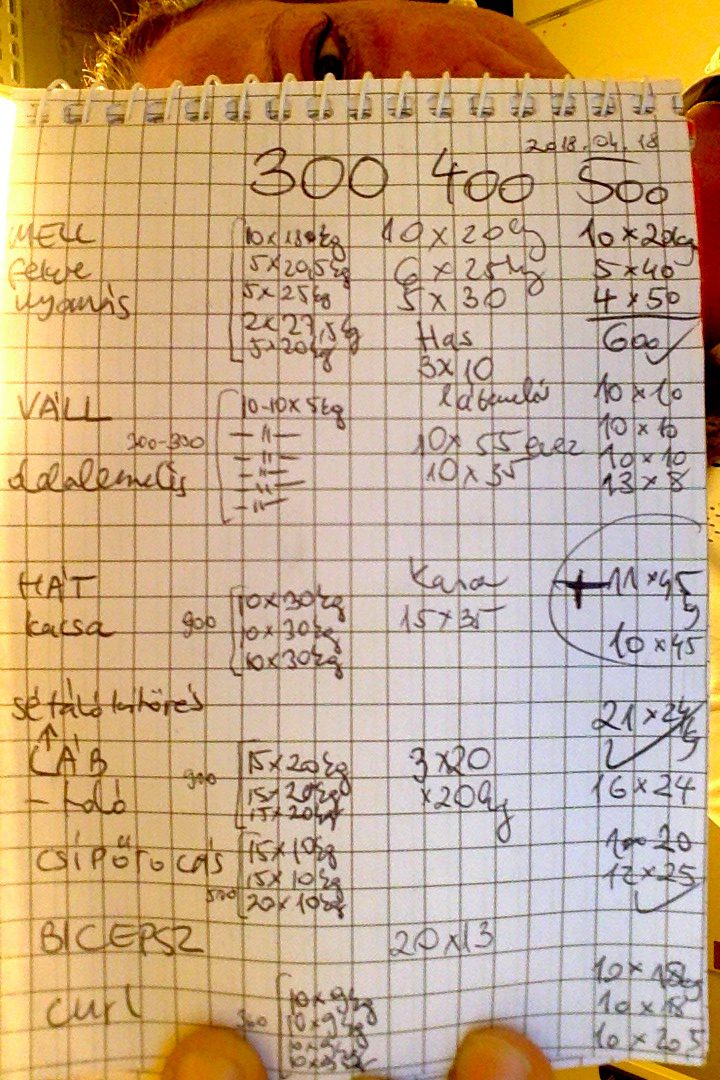 2018.04.18
300 400 500
MELL 10x18kg 10x20kg 10x20kg
fekve 5x20,5kg 6x25kg 5x40
nyomás 5x25kg 5x30 4x50
2x27,5kg Has 600 ✓
5x20kg 3x10
VÁLL 10-10x5kg 10x10
200-300 -〃- 10x55 10x10
-〃- 10x35 10x10
oldalemelés -〃- 13x8
-〃-
-〃-
HÁT 10x30kg + 11x45
kacsa 900 10x30kg 15x35
10x30kg 10x45
sétáló kitörés 21x24
↑
LÁB 15x20kg 3x20 ✓
900 15x20kg x20kg 16x24
- toló 15x20kg
CSÍPŐTOLÁS 15x10kg 20
15x10kg 12x25
500 20x10kg ✓
BICEPSZ 20x13
10x18kg
curl 10x9kg 10x18
360 10x9kg 10x20,5